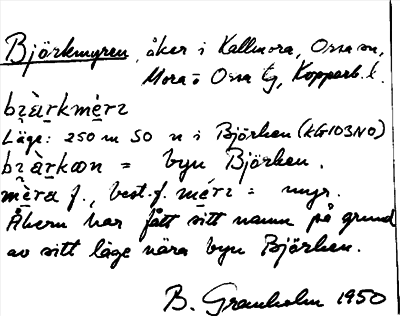 Björkmyren, åker i Kallmora, Orsa sn,
Mora o Orsa tg, Kopparb. l.
bɀàrkmérɀ
Läge: 250 m SO n i Björken (KG103NO)
bɀàrkøn = byn Björken.
mèra f., best. f. mérɀ = myr.
Åkern har fått sitt namn på grund
av sitt läge nära byn Björken.
B. Granholm 1950